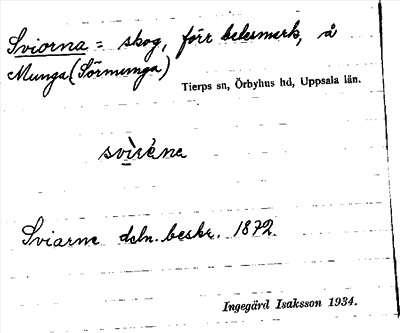 Sviorna = skog, förr betesmark, å
Munga (Sörmunga)
Tierps sn, Örbyhus hd, Uppsala län.
svìrèna
Sviarne dsln. beskr. 1872.
Ingegärd Isaksson 1934.